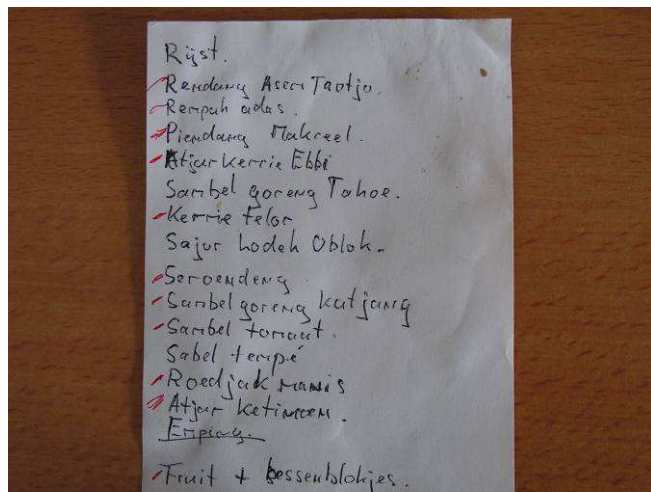 Rijst.
Rendang Asem Taotjo.
Rempah adas.
Piendang Makreel.
Atjar kerrie Ebbi
Sambel goreng Tahoe.
Kerrie telor
Sajor Lodeh Oblok-
Seroendeng
Sambel goreng katjang
Sambel tomaat.
Sabel tempé
Roedjak manis
Atjar ketimoen.
Emping.
Fruit + bessenblokjes.